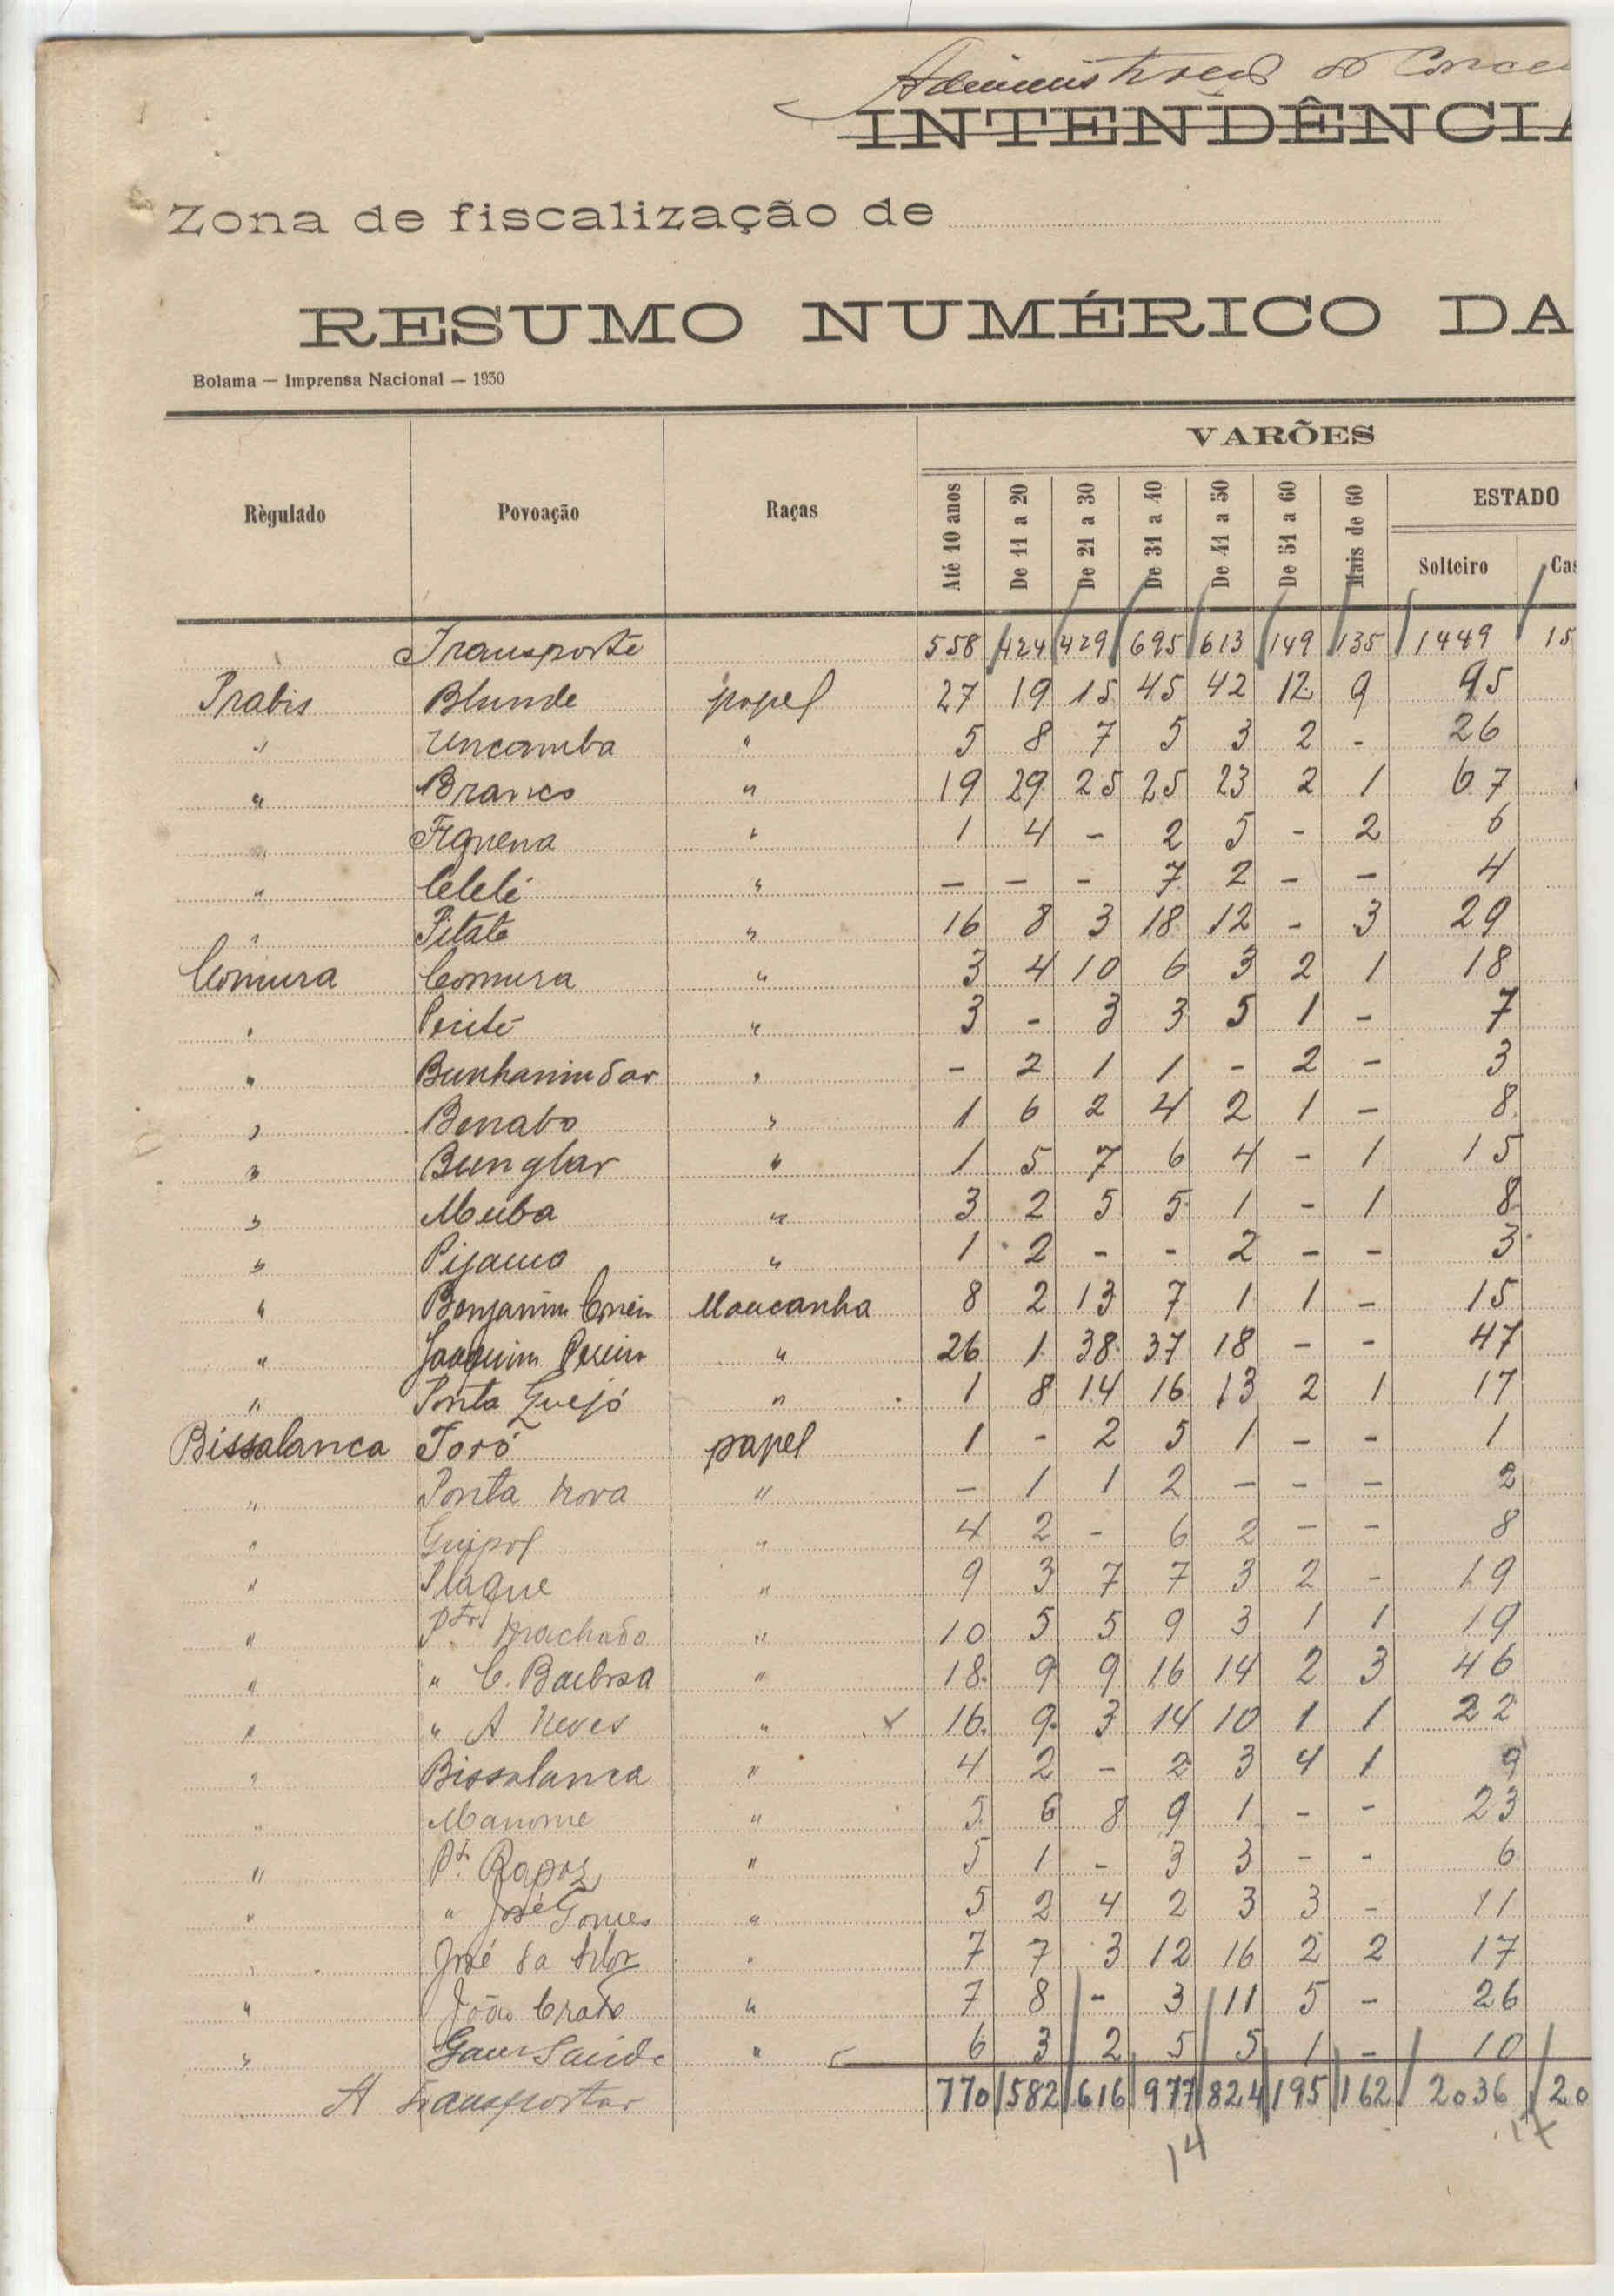 Administração do Conce
INTENDÊNCIA
Zona de fiscalização de
RESUMO NUMÉRICO DA
Bolama — Imprensa Nacional — 1930
Règulado Povoação Raças VARÕES
Até 10 anos De 11 a 20 De 21 a 30 De 31 a 40 De 41 a 50 De 51 a 60 Mais de 60 ESTADO
Solteiro Cas
Transporte 558 424 429 695 613 149 135 1449 15
Prabis Blunde papel 27 19 15 45 42 12 9 95
" Uncamba " 5 8 7 5 3 2 - 26
" Branco " 19 29 25 25 23 2 1 67
" " 1 4 - 2 5 - 2 6
" Celelé " - - - 7 2 - - 4
" Pitate " 16 8 3 18 12 - 3 29
Comura Comura " 3 4 10 6 3 2 1 18
" " 3 - 3 3 5 1 - 7
" Bunhamindar " - 2 1 1 - 2 - 3
" Benabo " 1 6 2 4 2 1 - 8
" Bunglar " 1 5 7 6 4 - 1 15
" Meuba " 3 2 5 5 1 - 1 8
" Pijama " 1 2 - - 2 - - 3
" Benjamim Correia Mancanha 8 2 13 7 1 1 - 15
" Joaquim Pereira " 26 1 38 37 18 - - 47
" Ponta Guejó " 1 8 14 16 13 2 1 17
Bissalanca Toró papel 1 - 2 5 1 - - 1
" Ponta Nova " - 1 1 2 - - - 2
" Guipol " 4 2 - 6 2 - - 8
" Plaque " 9 3 7 7 3 2 - 19
" Pta Machado " 10 5 5 9 3 1 1 19
" " C. Barbosa " 18 9 9 16 14 2 3 46
" " A Neves " x 16 9 3 14 10 1 1 22
" Bissalanca " 4 2 - 2 3 4 1 9
" Manome " 5 6 8 9 1 - - 23
" Pta Rapoz " 5 1 - 3 3 - - 6
" " José Gomes " 5 2 4 2 3 3 - 11
" José da Silva " 7 7 3 12 16 2 2 17
" João Crato " 7 8 - 3 11 5 - 26
" " 6 3 2 5 5 1 - 10
A transportar 770 582 616 977 824 195 162 2036 20
14 17